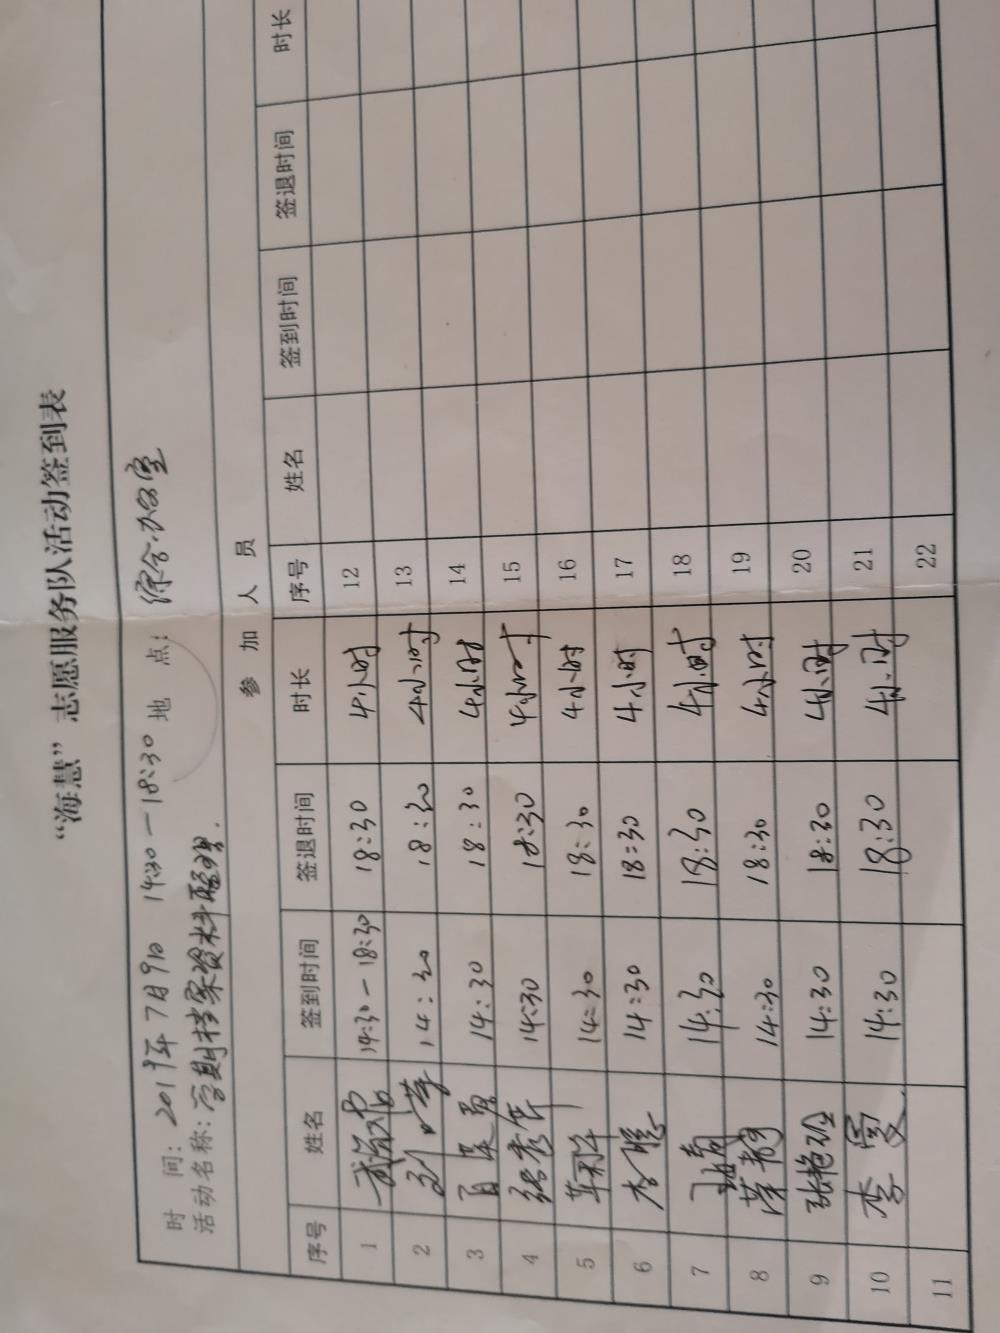 “海慧”志愿服务队活动签到表
时 间：2019年7月9日 14:30－18:30 地 点：综合办公室
活动名称：学期档案资料整理.
参 加 人 员
序号 姓名 签到时间 签退时间 时长 序号 姓名 签到时间 签退时间 时长
1 14:30－18:30 18:30 4小时 12
2 14:30 18:30 4小时 13
3 14:30 18:30 4小时 14
4 14:30 18:30 4小时 15
5 14:30 18:30 4小时 16
6 14:30 18:30 4小时 17
7 14:30 18:30 4小时 18
8 14:30 18:30 4小时 19
9 张艳玲 14:30 18:30 4小时 20
10 李 14:30 18:30 4小时 21
11 22